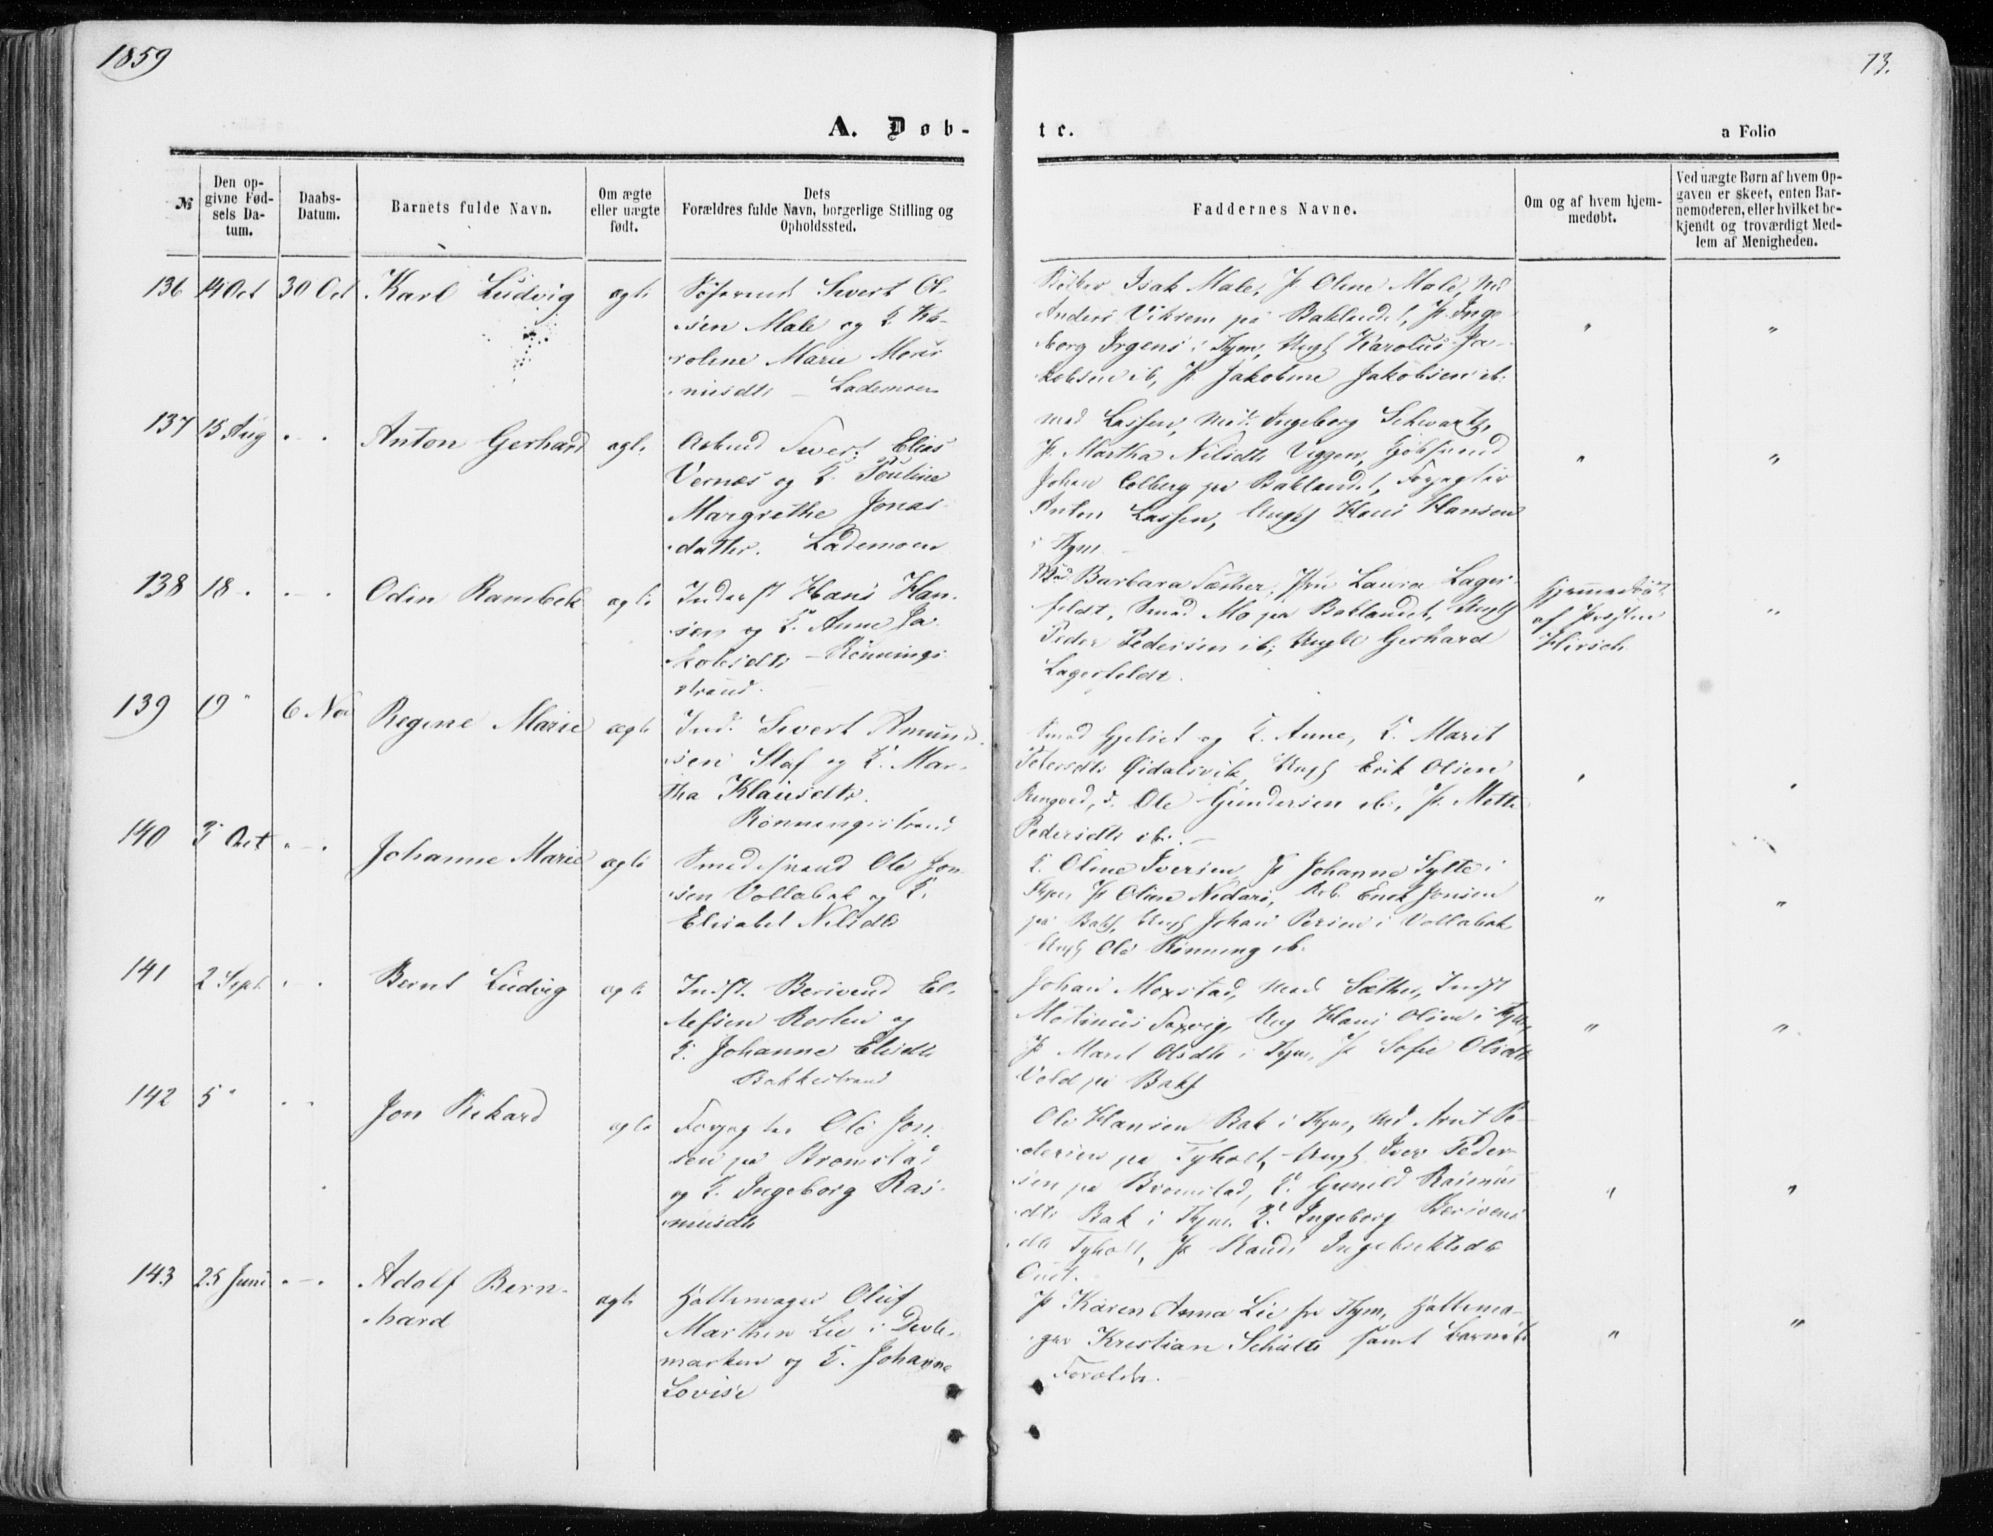 1859
73.
A. Døb-
te.
a Folio
№
Den op-
givne Fød-
sels Da-
tum.
Daabs-
Datum.
Barnets fulde Navn.
Om ægte
eller uægte
født.
Dets
Forældres fulde Navn, borgerlige Stilling og
Opholdssted.
Faddernes Navne.
Om og af hvem hjem-
medøbt.
Ved uægte Børn af hvem Op-
gaven er skeet, enten Bar-
nemoderen, eller hvilket be-
kjendt og troværdigt Med-
lem af Menigheden.
136 14 Oct 30 Oct Karl Ludvig ægte
Sivert Ol-
sen Male og K. Ka-
roline Marie Mons
Lademoen
Isak Male, P. Oline Male,
Anders Viksem på Baklandet, P. Inge-
borg Irgens i Thjem, Karolus Ja-
kobsen ib, P. Jakobine Jakobsen ib.
" "
137 15 Aug " - " Anton Gerhard ægte
Arbmd Sivert Elias
Vernæs og K. Pauline
Margrethe Jonas-
datter. Lademoen
Mad Lassen, Mad. Ingeborg Schwartz,
P. Martha Nilsdtr Viggen,
Johan Colberg på Baklandet, Forpagter
Anton Lassen, Ungk Hans Hansen
i Thjm
" "
138 18 " " - " Odin Rambek ægte
Inderst Hans Han-
sen og K. Anne Ja-
kobsdtr - Rønnings-
strand.
Mad Barbara Sæther, Fru Laura Lagers-
feldt, Smed Mo på Baklandet, Ungk
Peder Pedersen ib, Ungk Gerhard
Lagerfeldt.
Hjemmedøbt
af Presten
Hirsch
"
139 19 " 6 Nov Regine Marie ægte
Ind. Sivert Amund-
sen Staf og K. Mar-
tha Klausdtr.
Rønningsstrand
Smed Gjelset og K. Anne, K. Marit
Petersdtr Ungk Erik Olsen
Ringved, d. Ole Gundersen ib, P. Mette
Pedersdtr ib.
" "
140 3 Oct " - " Johanne Marie ægte
Smedesvend Ole Jon-
sen Vollabak og K.
Elisabet Nilsdtr
K. Oline Iversen, P. Johanne Sylte i
Thjm P. Oline Nidarø, Erik Jonsen
på Bakl, Ungk Johan Persen i Vollabak
Ungk Ole Rønning ib.
" "
141 2 Sept " - " Bernt Ludvig ægte
Indst. Berivend El-
lefsen Rosten og
K. Johanne Elisdtr
Bakkestrand
Johan Moxstad, Mad Sæther, Indst
Martinus Saxvig, Ung Hans Olsen i Thjm,
P. Maret Olsdtr i Thjm, P. Sofie Olsdtr
Vold på Bakl
" "
142 5 " " - " Jon Rikard ægte
Forpagter Ole Jon-
sen på Bromstad
og K. Ingeborg Ras-
musdtr
Ole Hansen Bak i Thjm, Arnt Pe-
dersen på Tyholt, Ungk Iver Peder-
sen på Bromstad, K. Gunild Rasmus-
dtr Bak i Thjm. K. Ingeborg Berivens-
dtr Tyholt, P. Randi Ingebrektsdtr
" "
143 25 Juni " - " Adolf Bern-
hard ægte
Hattemager Oluf
Marthin Lie i Devle-
marken og K. Johanne
Lovise
P. Karen Anna Lie fr Thjm, Hattema-
ger Kristian Schulte samt Barnets
Forældre.
" "